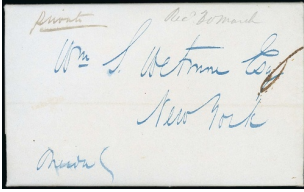 Private
Rec'd 20 March
Wm S. Wetmore Esq
New York